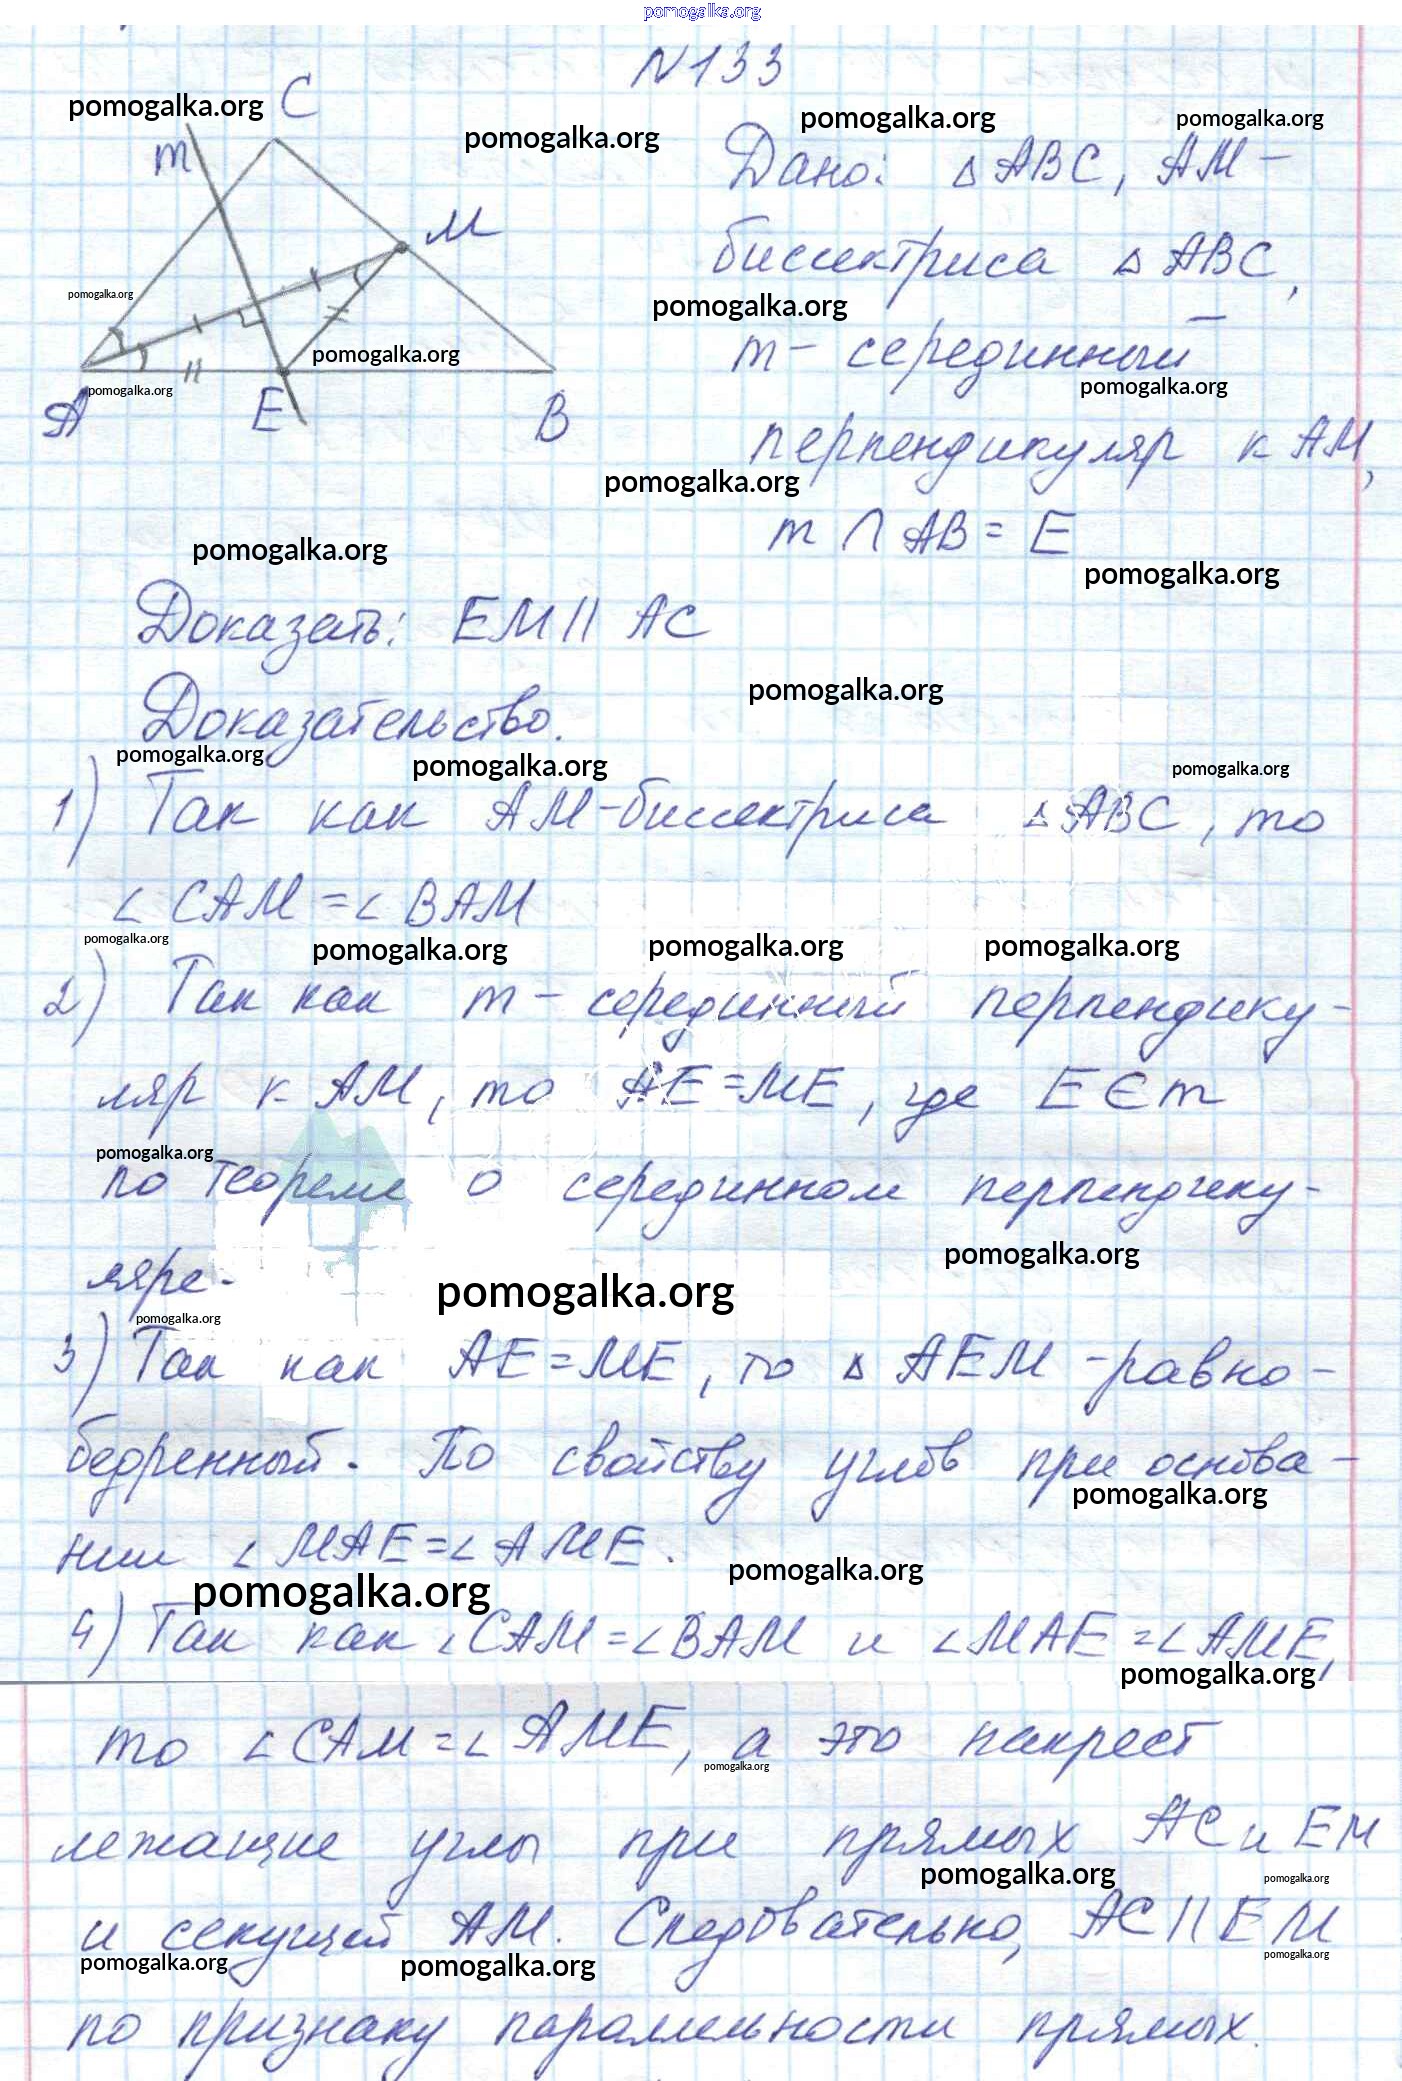 pomogalka.org
№133
pomogalka.org C
pomogalka.org
pomogalka.org
pomogalka.org
m
Дано: △ABC, AM-
M
биссектриса △ABC,
pomogalka.org
pomogalka.org
m - серединный
pomogalka.org
pomogalka.org
pomogalka.org
A E B
перпендикуляр к AM,
pomogalka.org
m ∩ AB = E
pomogalka.org
pomogalka.org
Доказать: EM || AC
pomogalka.org
Доказательство.
pomogalka.org
pomogalka.org
pomogalka.org
1) Так как AM-биссектриса △ABC, то
∠CAM = ∠BAM
pomogalka.org
pomogalka.org
pomogalka.org
pomogalka.org
2) Так как m - серединный перпендику-
ляр к AM, то AE = ME, где E ∈ m
pomogalka.org
по теореме о серединном перпендику-
pomogalka.org
ляре.
pomogalka.org
pomogalka.org
3) Так как AE = ME, то △AEM - равно-
бедренный. По свойству углов при основа-
pomogalka.org
нии ∠MAE = ∠AME.
pomogalka.org
pomogalka.org
4) Так как ∠CAM = ∠BAM и ∠MAE = ∠AME,
pomogalka.org
то ∠CAM = ∠AME, а это накрест
pomogalka.org
лежащие углы при прямых AC и EM
pomogalka.org
pomogalka.org
и секущей AM. Следовательно, AC || EM
pomogalka.org
pomogalka.org
pomogalka.org
по признаку параллельности прямых.